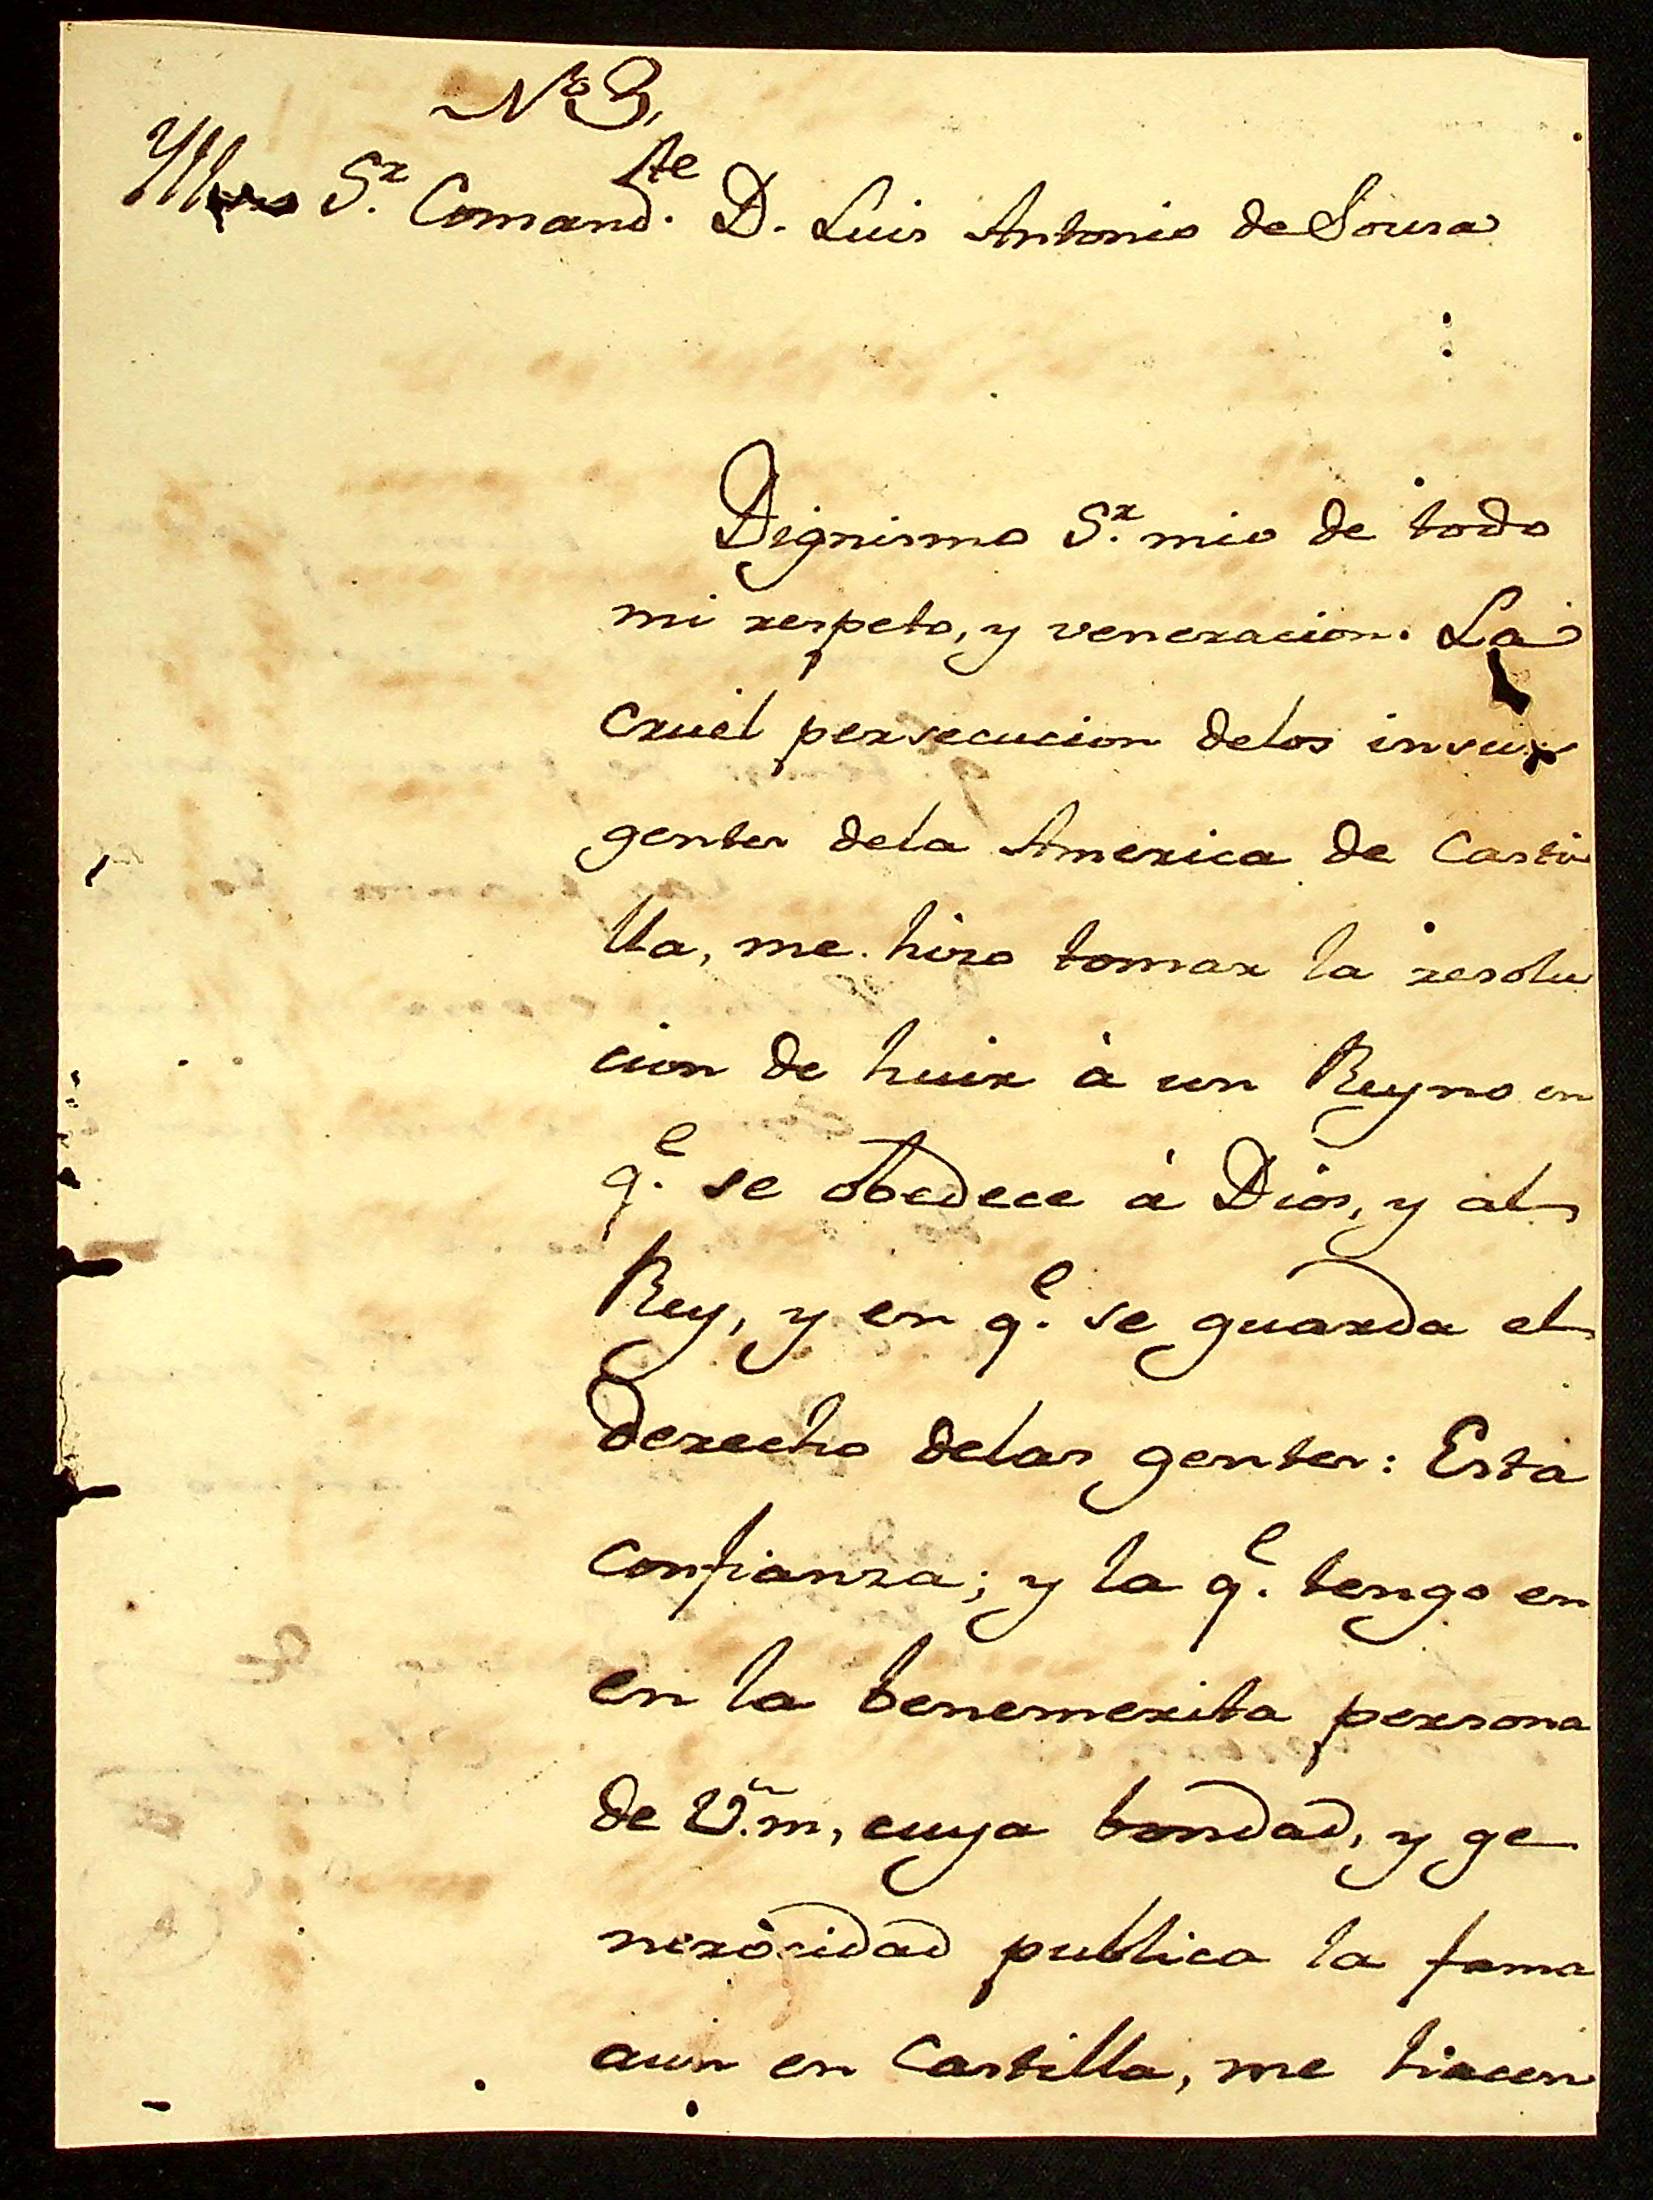 Nº 3,
Yllmo Sr. Comandte. D. Luis Antonio de Sousa
Dignismo Sr. mio de todo
mi respeto, y veneracion. La
cruel persecucion delos insur
gentes dela America de Casti
lla, me hizo tomar la resolu
cion de huir à un Reyno en
qe. se obedece à Dios, y al
Rey, y en qe. se guarda el
derecho delas gentes: Esta
confianza; y la qe. tengo en
en la benemerita persona
de V.m, cuya bondad, y ge
nerosidad publica la fama
aun en Castilla, me hacen